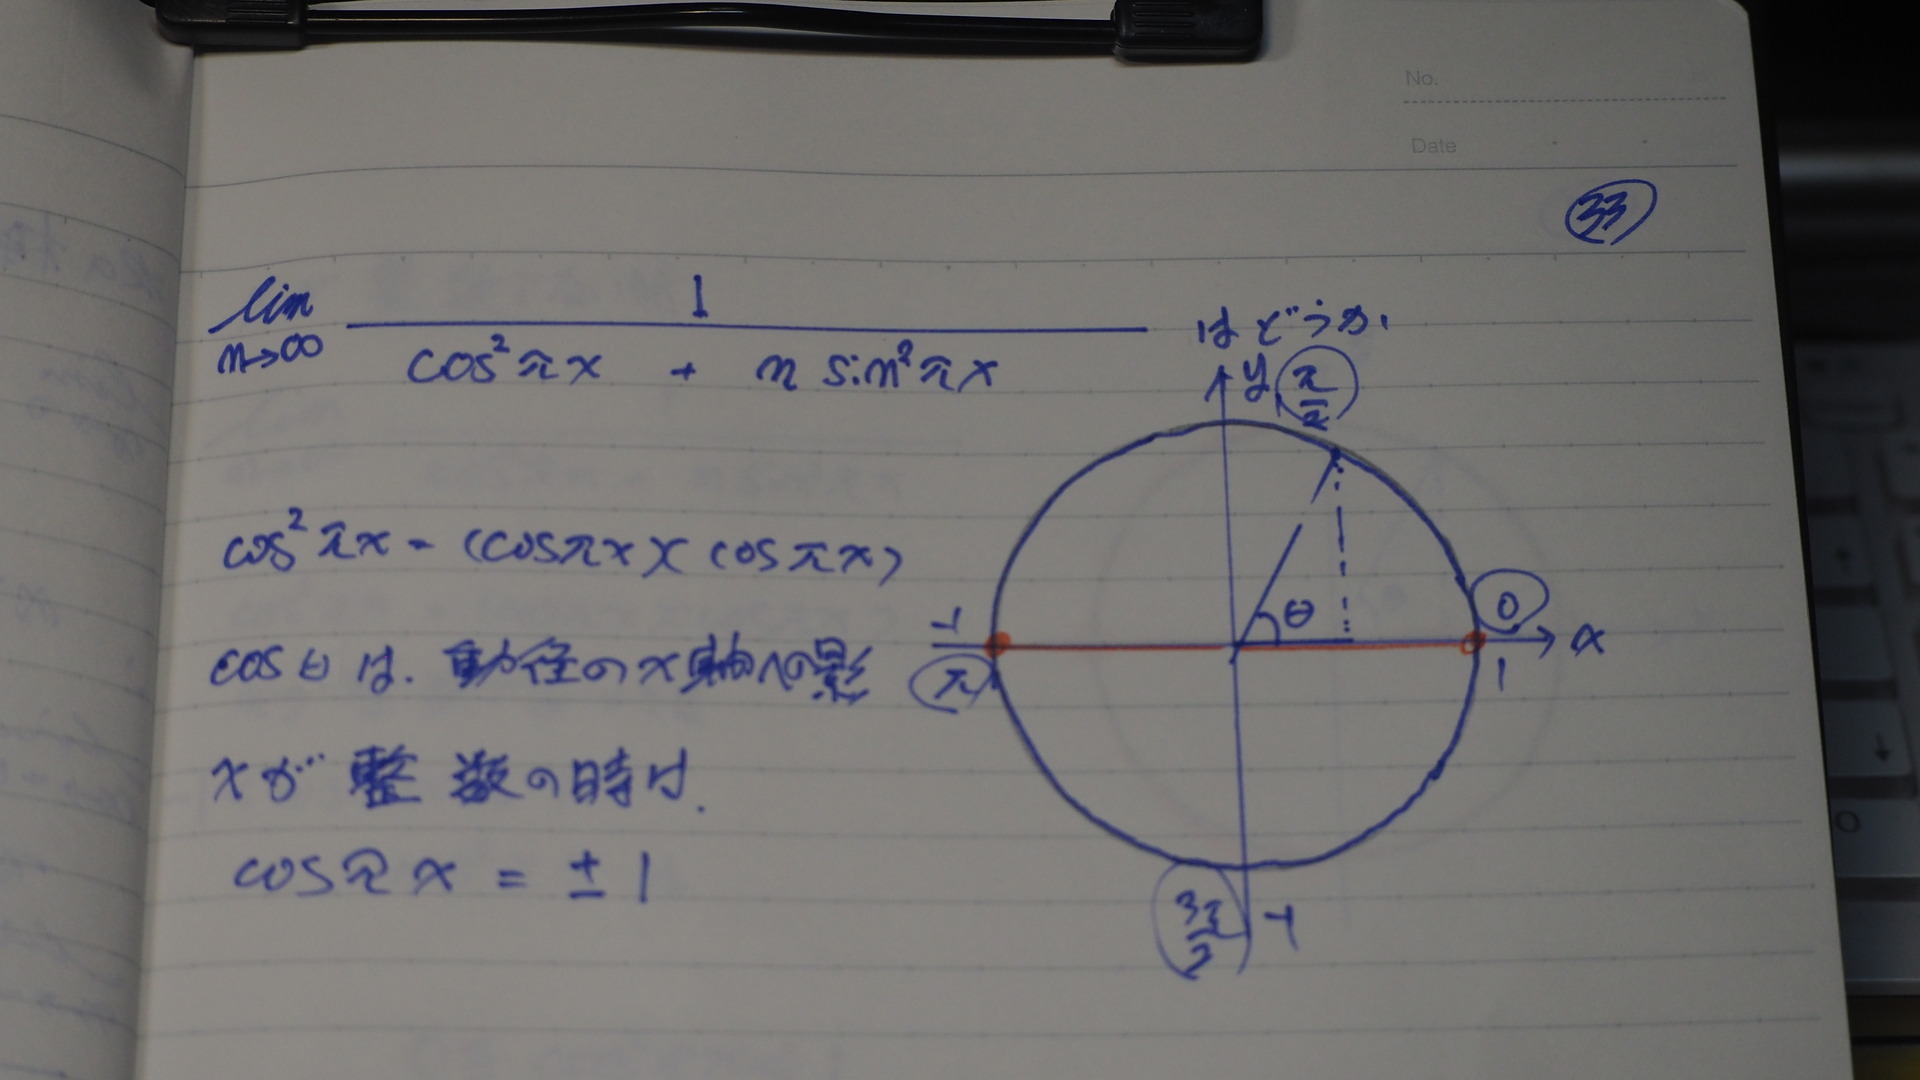 No.
Date
33
lim n→∞ 1 / (cos²πx + n sin²πx) はどうか.
cos²πx = (cosπx)(cosπx)
cosθは. 動径のx軸への影
xが整数の時は.
cosπx = ±1
y
π/2
θ
0
x
1
-1
π
3π/2
-1